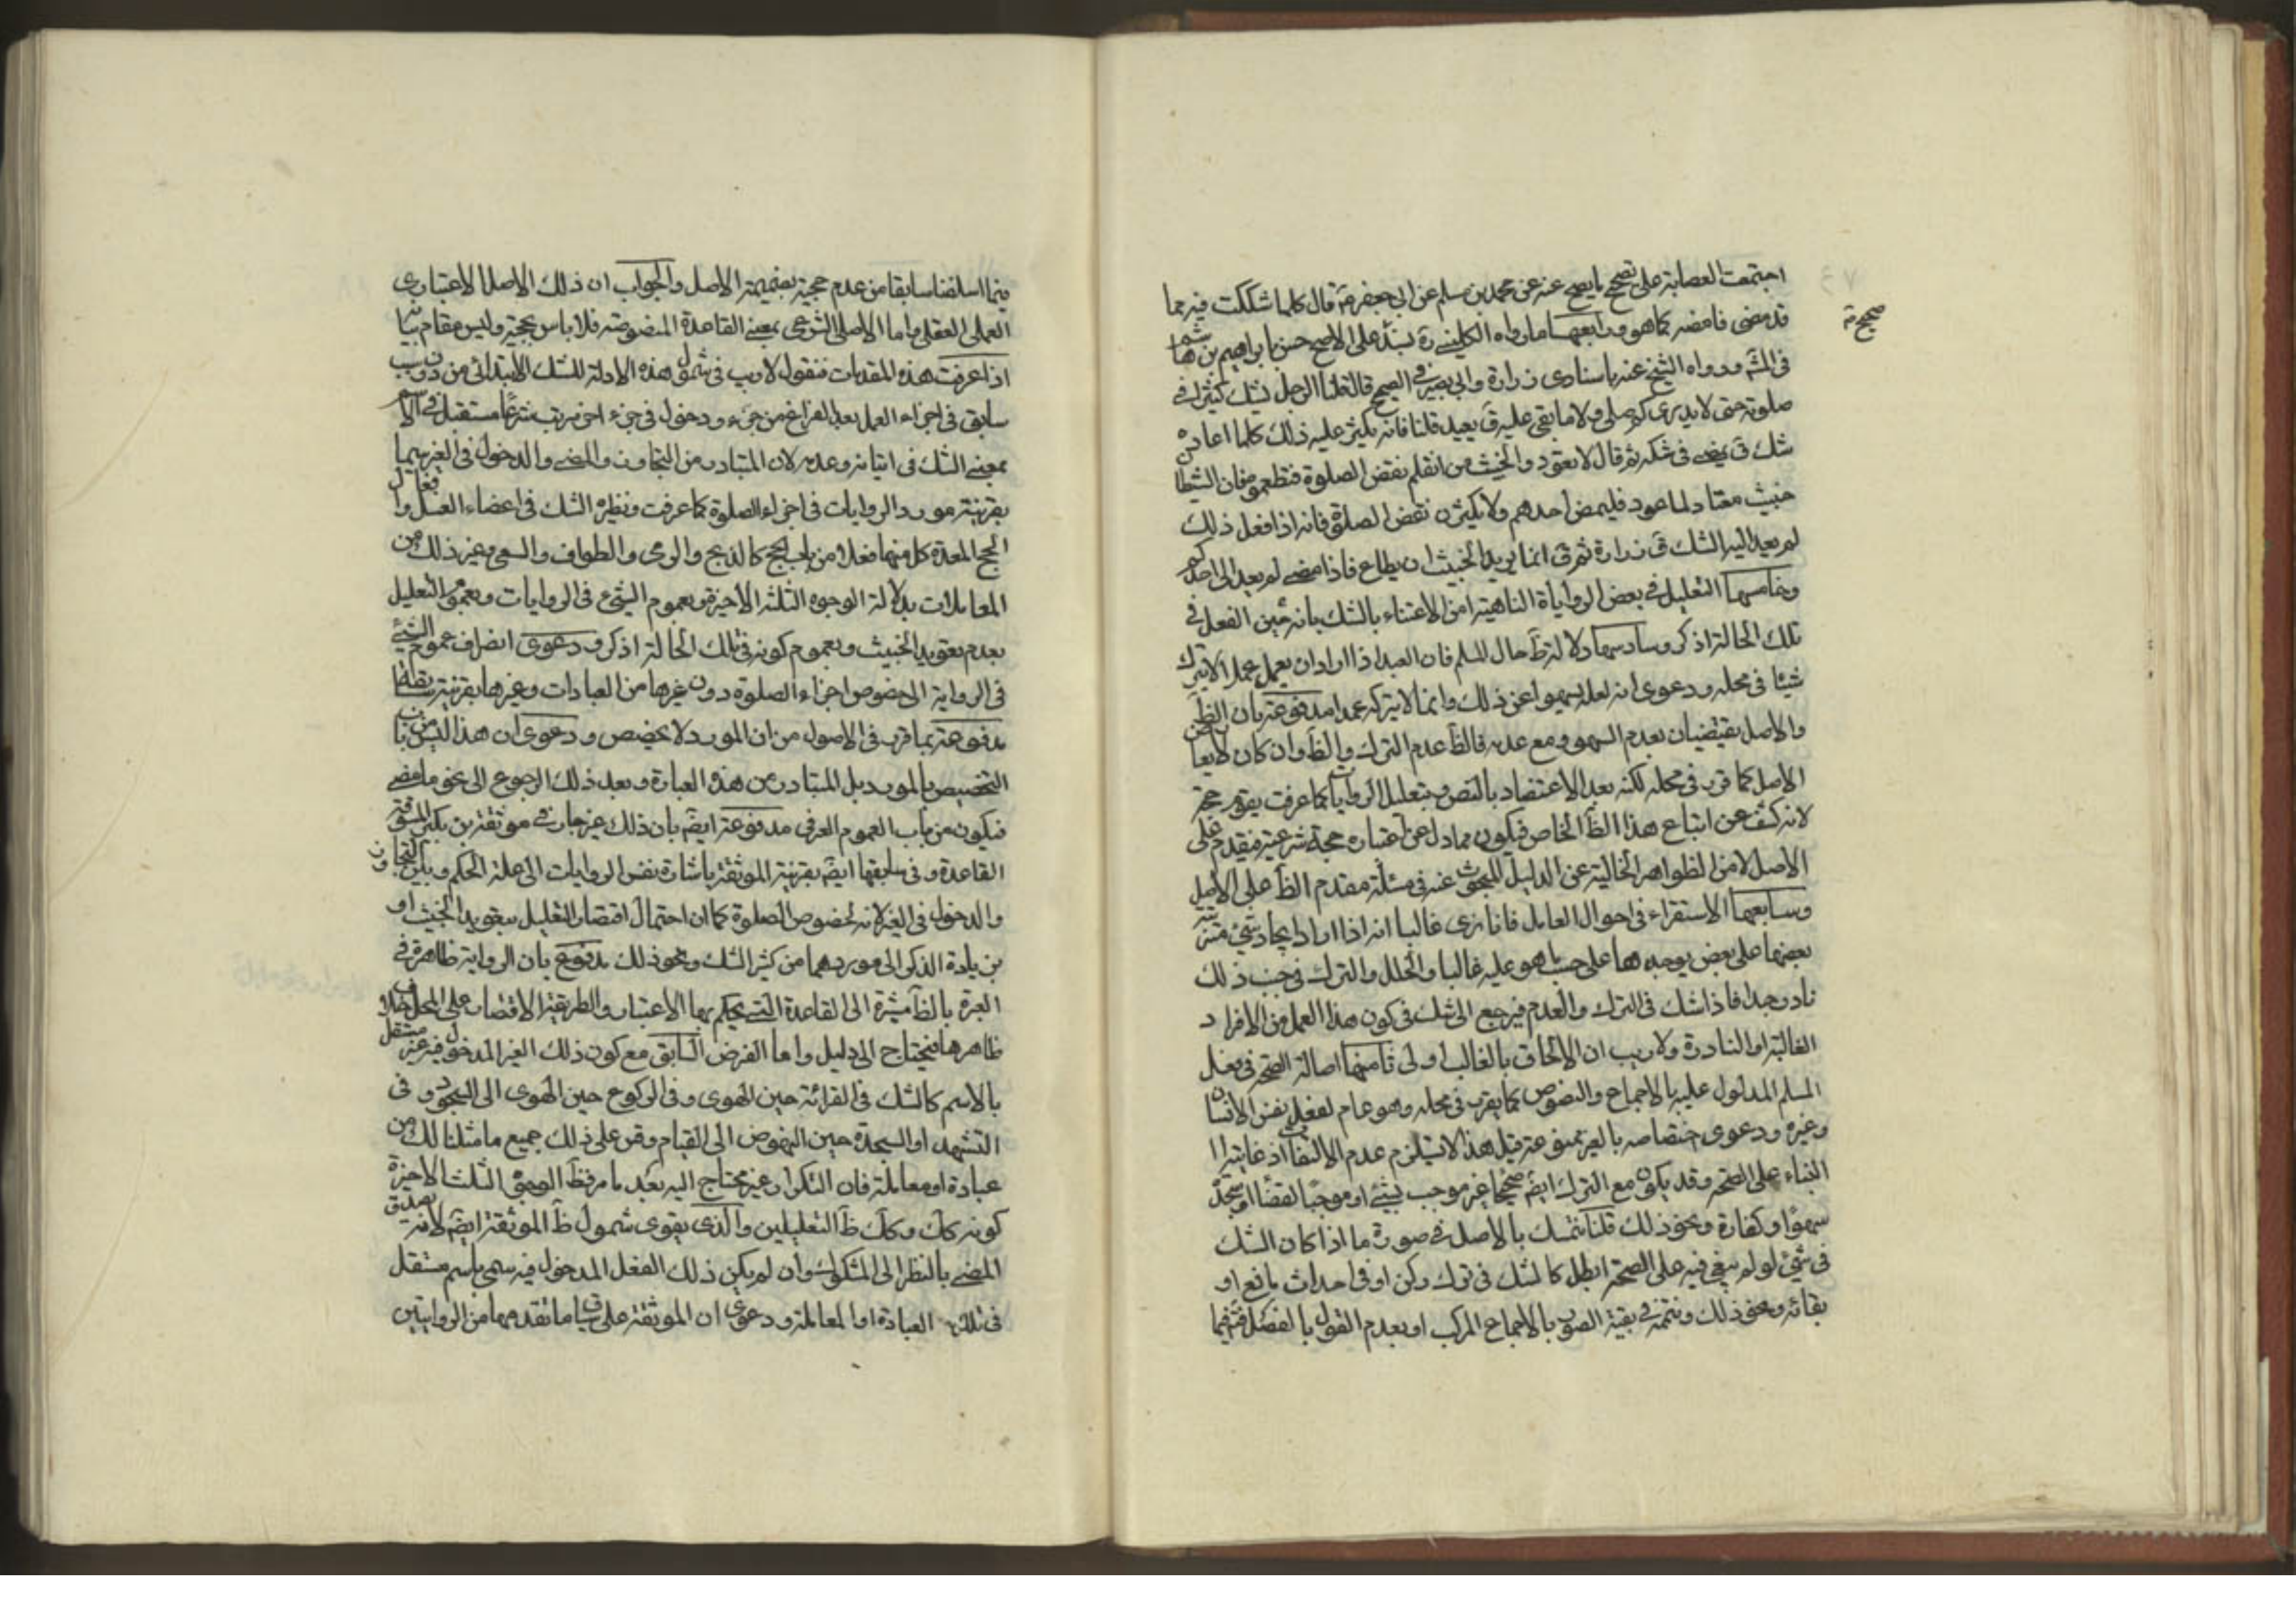 اجتمعت العصابة على تصحيح ما يصح عنه عن محمد بن مسلم عن ابى جعفر قال كلما شككت فيه مما
صحيح
قد مضى فامضه كما هو ورابعها ما رواه الكلينى ره بسنده على الاصح حسن بابراهيم بن هاشم
فى المشهور ورواه الشيخ عنه باسناده زرارة وابى بصير فى الصحيح قالا قلنا الرجل يشك كثيرا فى
صلوته حتى لا يدرى كم صلى ولا ما بقى عليه ق يعيد قلنا فانه يكثر عليه ذلك كلما اعاد
شك ق يمضى فى شكه ثم قال لا تعودوا الخبيث من انفسكم نقض الصلوة فتطمعوه فان الشيطان
خبيث معتاد لما عود فليمض احدهم ولا يكثرن نقض الصلوة فانه اذا فعل ذلك
لم يعد اليه الشك ق زرارة ثم ق انما يريد الخبيث ان يطاع فاذا عصى لم يعد الى احدكم
وخامسها التعليل فى بعض الروايات الناهية من الاعتناء بالشك بانه حين الفعل فى
تلك الحالة اذكر وسادسها دلالة ظ حال المسلم فان العبد اذا اراد ان يعمل عملا لا يترك
شيئا فى محله ودعوى انه لعله يسهو عن ذلك وانما لا يتركه عمدا مدفوعة بان الظ
والاصل يقتضيان بعدم السهو ومع عدمه فالظ عدم الترك والظ وان كان لا يعارض
الاصل كما قرر فى محله لكنه بعد الاعتضاد بالنص وبتعليل الروايات كما عرفت يقوم حجة
لانه كشف عن اتباع هذا الظ الخاص فيكون مما دل على اعتباره حجة شرعية فيقدم على
الاصل لا من الظواهر الخالية عن الدليل المبحوث عنه فى مسئلة مقدم الظ على الاصل
وسابعها الاستقراء فى احوال العامل فانا نرى غالبا انه اذا اراد ايجاد شئ مترتب
بعضها على بعض يوجدها على حسب ما هو عليه غالبا والخلل والترك فى جنب ذلك
نادر جدا فاذا شك فى الترك والعدم فيرجع الى شك فى كون هذا العمل من الافراد
الغالبة او النادرة ولا ريب ان الالحاق بالغالب اولى ثامنها اصالة الصحة فى فعل
المسلم المدلول عليه بالاجماع والنصوص كما يقرر فى محله وهو عام لفعل نفس الانسان
وغيره ودعوى اختصاصه بالغير ممنوعة قيل هذا لا يستلزم عدم الالتفات اذ غايته
البناء على الصحة وقد يكون مع الترك ايضا صحيحا غير موجب لشئ او موجبا لقضاء او سجدة
سهو او كفارة ونحو ذلك قلنا نتمسك بالاصل فى صورة ما اذا كان الشك
فى شئ لو لم يبنى فيه على الصحة ابطل كالشك فى ترك ركن او فى احداث مانع او
بقائه ونحو ذلك ونتممه فى بقية الصور بالاجماع المركب او بعدم القول بالفصل فتم فيما
فيما اسلفنا سابقا من عدم حجية بضميمة الاصل والجواب ان ذلك الاصل الاعتبارى
العملى العقلى واما الاصل الشرعى بمعنى القاعدة المنصوصة فلا باس بحجية وليس مقام بيانه
اذا عرفت هذه المقدمات فنقول لا ريب فى شمول هذه الادلة للشك الابتدائى من دون سبب
سابق فى اجزاء العمل بعد الفراغ من جزء ودخول فى جزء اخر مرتب شرعا مستقل فى الاسم
بمعنى الشك فى اتيانه وعدمه لان المتبادر من التجاوز والمضى والدخول فى الغير هما
بقرينة مورد الروايات فى اجزاء الصلوة كما عرفت ونظيره الشك فى اعضاء الغسل وافعال
الحج المعدة كل منها فعلا من باب الحج كالذبح والرمى والطواف والسعى وغير ذلك من
المعاملات بدلالة الوجوه الثلثة الاخيرة وبعموم الشئ فى الروايات وبعموم التعليل
بعدم تعويد الخبيث وبعموم كونه فى تلك الحالة اذكر ودعوى انصراف عموم الشئ
فى الرواية الى خصوص اجزاء الصلوة دون غيرها من العبادات وغيرها بقرينة
مدفوعة بما قرر فى الاصول من ان المورد لا يخصص ودعوى ان هذا ليس من باب
التخصيص بالمورد بل المتبادر من هذه العبارة وبعد ذلك الرجوع الى نحو ما مضى
فيكون من باب العموم العرفى مدفوعة ايضا بان ذلك غير جار فى موثقة بن بكير
القاعدة وفى سابقها ايضا بقرينة الموثقة باشارة نفس الروايات الى علة الحكم وبان التجاوز
والدخول فى الغير لا نه لخصوص الصلوة كما ان احتمال اقتصار التعليل بتعويد الخبيث او
بزيادة الذكر الى موردهما من كثير الشك ونحو ذلك مدفوع بان الرواية ظاهرة فى
العبرة بالظ مشيرة الى القاعدة التى يحكم بها الاعتبار والطريقة الاقتصار على المحل خلاف
ظاهرها فيحتاج الى دليل واما الفرض السابق مع كون ذلك الغير المدخول فيه غير مستقل
بالاسم كالشك فى القرائة حين الهوى وفى الركوع حين الهوى الى السجود وفى
التشهد او السجدة حين النهوض الى القيام وقس على ذلك جميع ما مثلنا لك من
عبادة او معاملة فان التكرار غير محتاج اليه بعد ما مر فظ الوجوه الثلث الاخيرة
كونه كك وكك ظ التعليلين والذى يقوى شمول ظ الموثقة ايضا لانه يصدق
المضى بالنظر الى المشكوك وان لم يكن ذلك الفعل المدخول فيه سمى باسم مستقل
فى تلك العبادة او المعاملة ودعوى ان الموثقة على سياق ما تقدمها من الروايتين